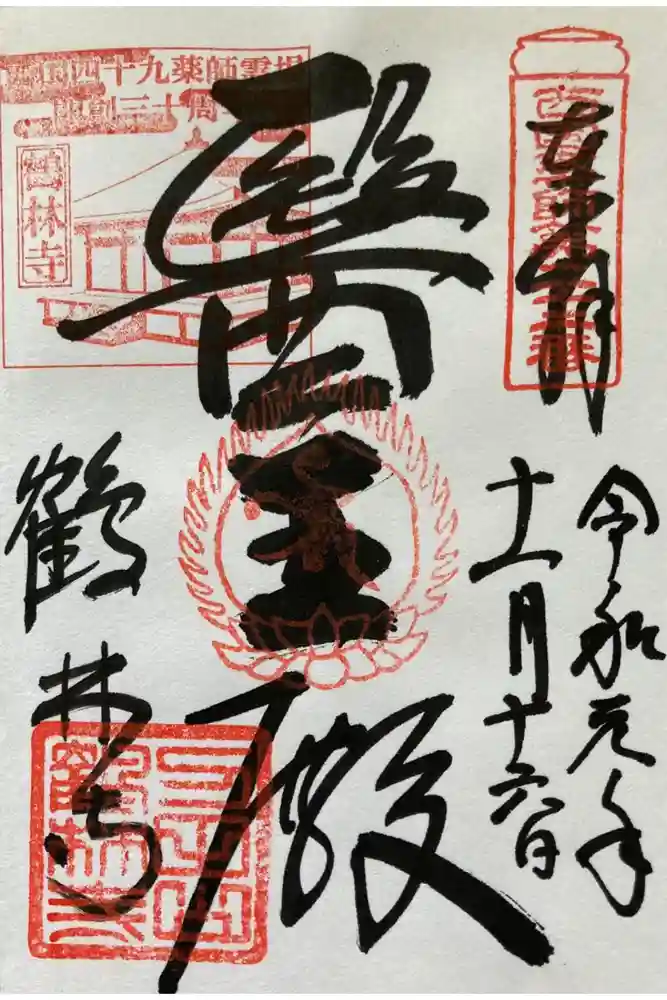 奉拝
令和元年
十一月十六日
醫王殿
鶴林寺
西国四十九薬師霊場
開創三十周年
鶴林寺